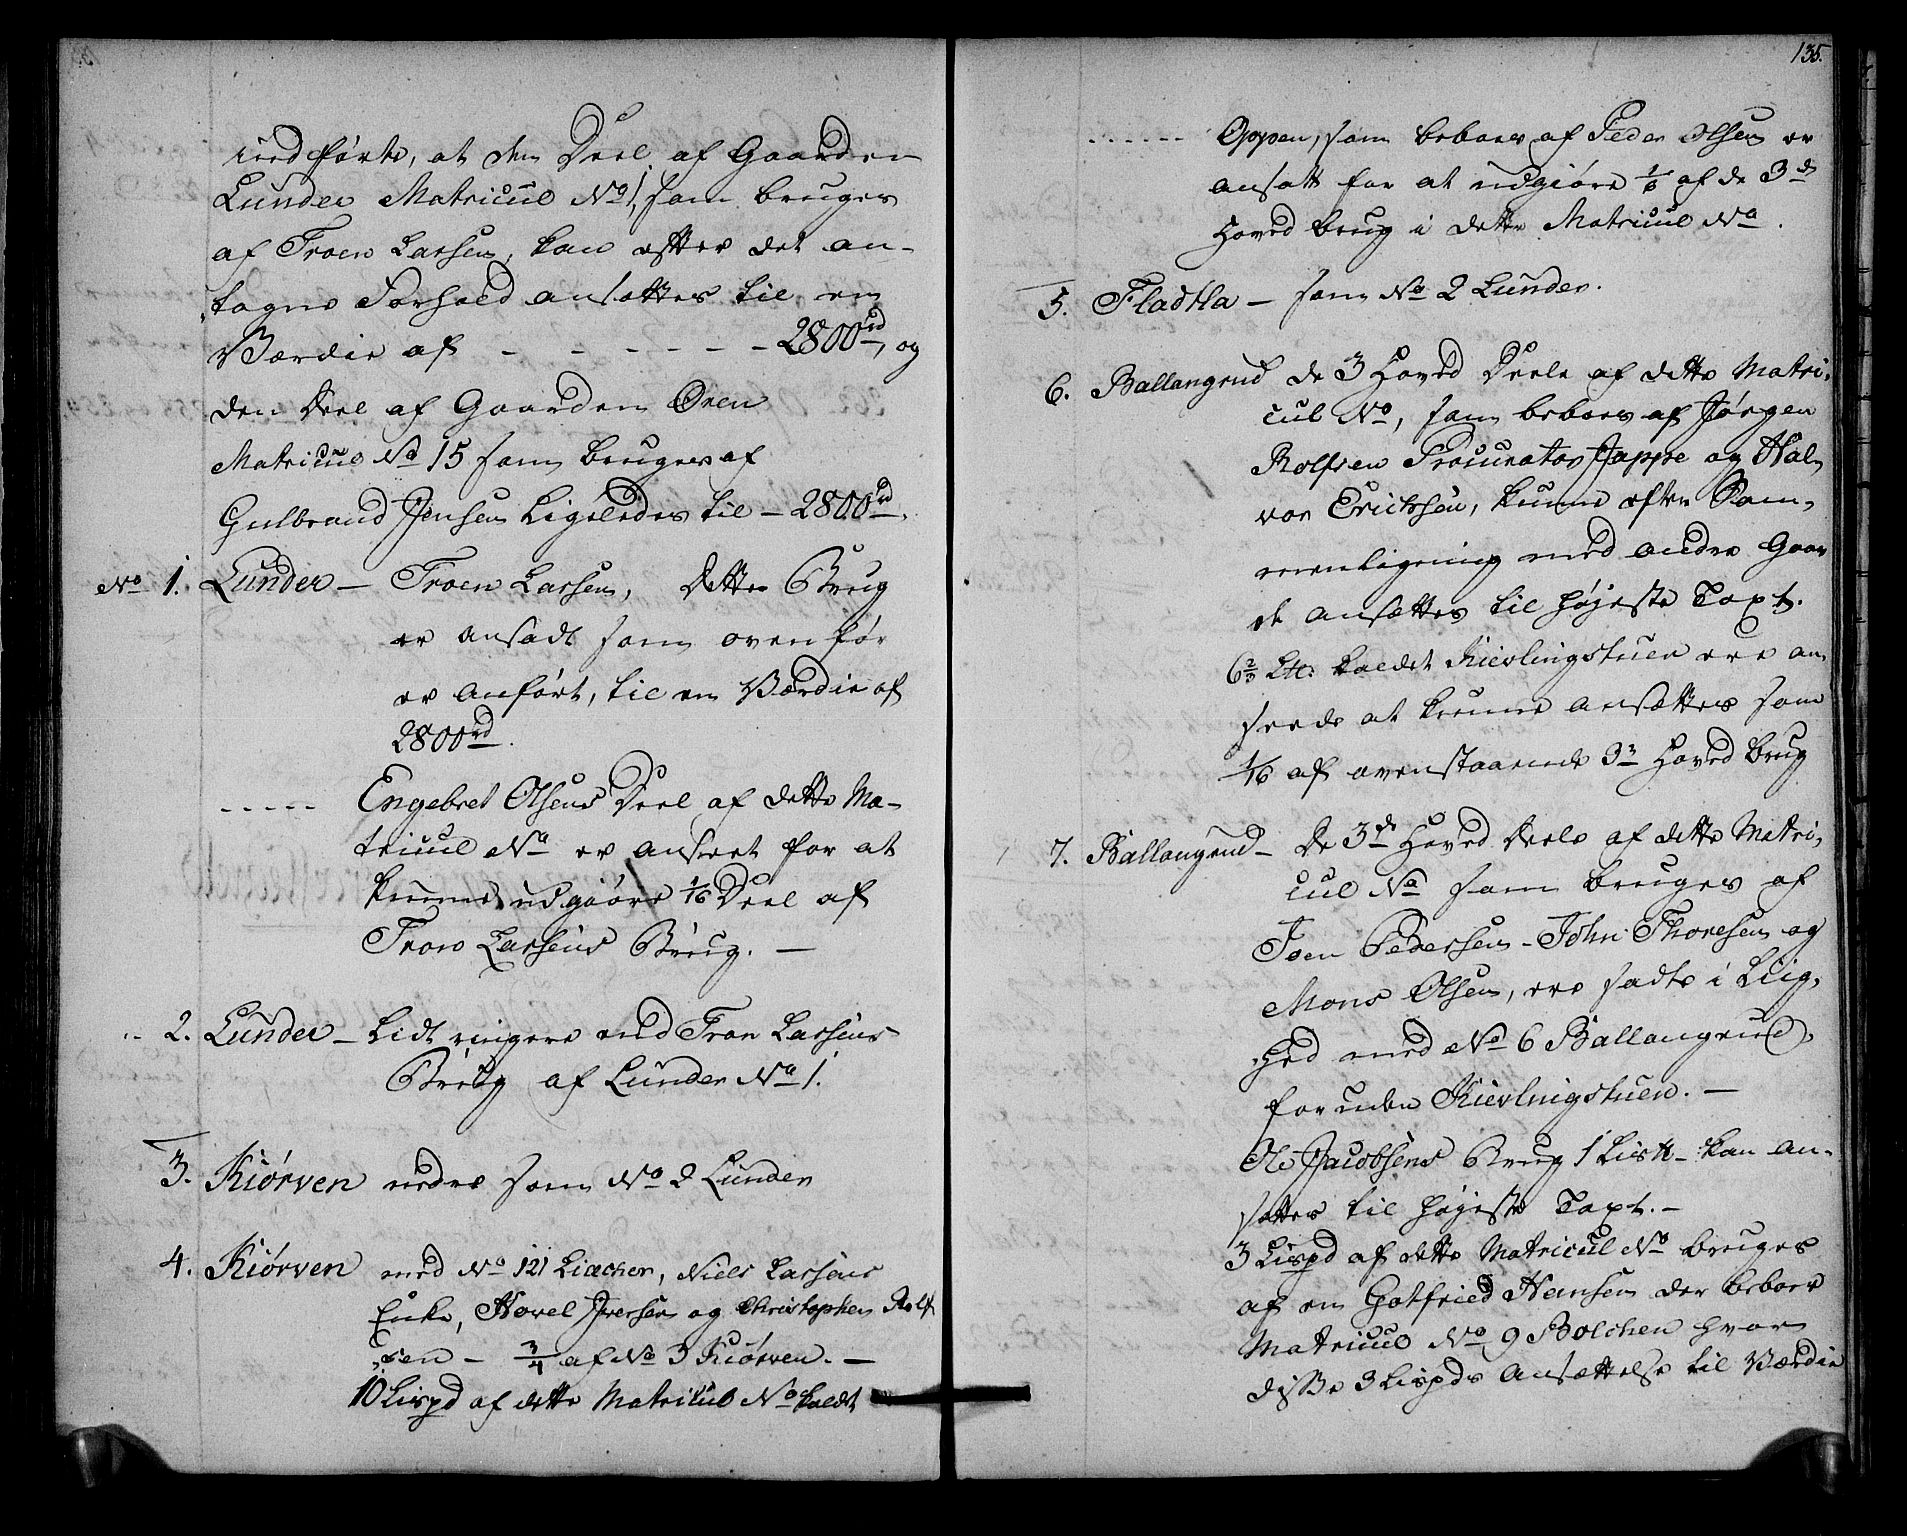 indførte, at den Deel af Gaarden
Lunder Matricul No 1, som bruges
af Troen Larsen, kan efter det an-
tagne Forhold ansættes til en
Værdie af - - - - - - 2800rd, og
den Deel af Gaarden Øren
Matricul No 15 som bruges af
Gulbrand Jensen Ligeledes til - 2800rd.
No 1. Lunder - Troen Larsen, dette Brug
er ansadt som ovenfor
er anført, til en Værdie af
2800rd.
- - - - - Engebret Olsens Deel af dette Ma-
tricul No er anseet for at
kunne udgiøre 1/16 Deel af
Troen Larsens Brug. -
2. Lunder - Lidt ringere end Tron Larsens
Brug af Lunder No 1.
3. Kiørven nedre som No 2 Lunder
4. Kiørven med No 121 Liæcher, Niels Larsens
Enke, Hovel Iversen og Christopher Rolf-
sen - 3/4 af No 3 Kiørven. -
10 Lispd af dette Matricul No kaldet
135.
- - - - - - Oppen, som beboes af Peder Olsen er
ansatt for at udgiøre 1/8 af de 3de
Hoved brug i dette Matricul No.
5. Fladtla - som No 2 Lunder.
6. Ballangrud de 3 Hoved Deele af dette Matri-
cul No, som beboes af Jørgen
Rolfsen Procurator Jappe og Hal-
vor Erichsen, kunne efter Sam-
menligning med andre Gaar-
de ansættes til højeste Taxt.
6 2/3 Lb: kaldet Kievlingstuen ere an-
seede at kunne ansættes som
1/16 af ovenstaaende 3de Hoved brug
7. Ballangrud - De 3de Hoved Deele af dette Matri-
cul No som bruges af
Joen Pedersen - John Thoresen og
Mons Olsen, ere sadte i Liig-
hed med No 6 Ballangrud,
foruden Kievlingstuen. -
Ole Jacobsens Brug 1 Lis℔ - kan an-
sættes til højeste Taxt. -
3 Lispd af dette Matricul No bruges
af en Gotfried Hansen der beboer
Matricul No 9 Bolchen hvor
disse 3 Lispds Ansættelse til Værdie